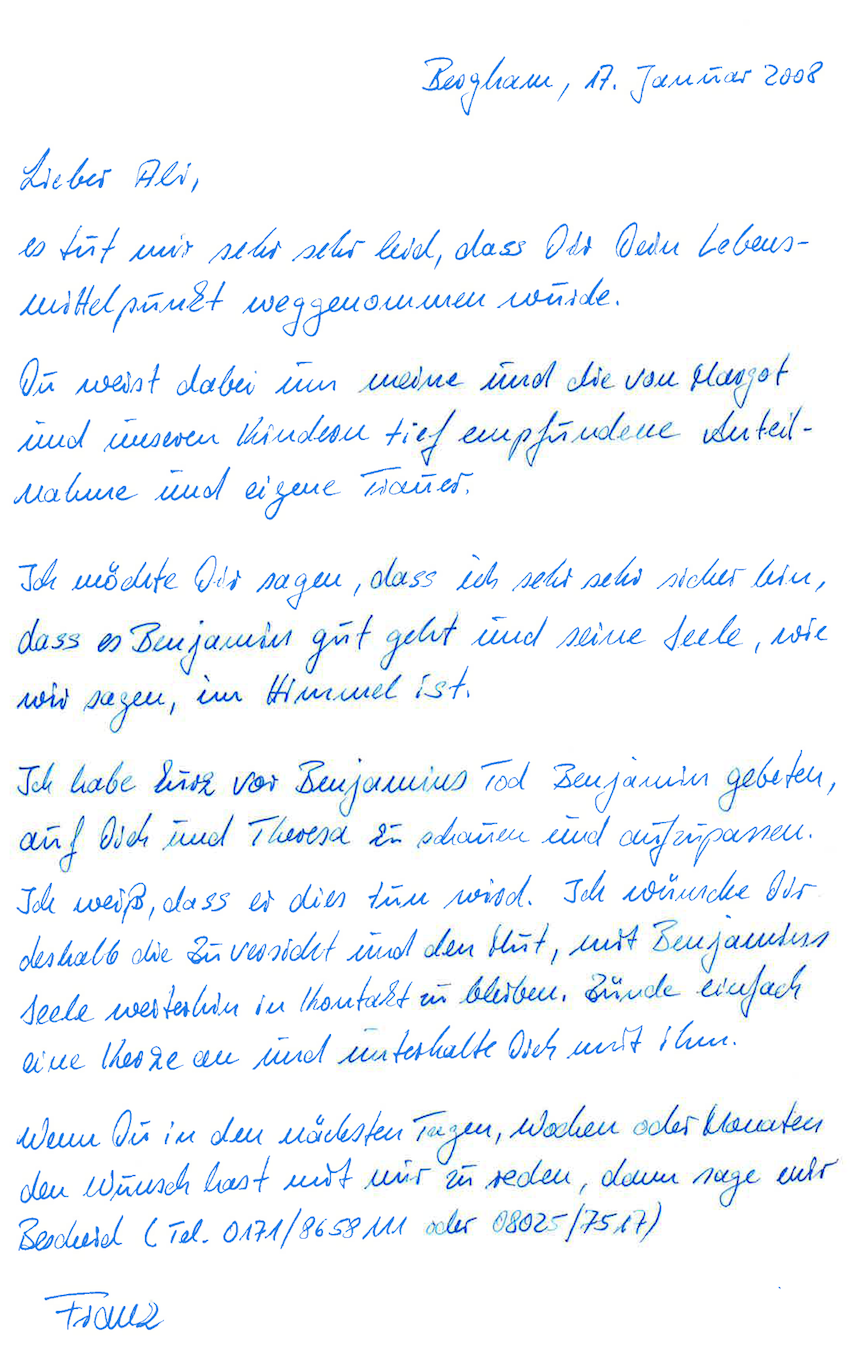 Bergham, 17. Januar 2008
Lieber Ali,
es tut mir sehr sehr leid, dass Dir Dein Lebens-
mittelpunkt weggenommen wurde.
Du weist dabei um meine und die von Margot
und unseren Kindern tief empfundene Anteil-
nahme und eigene Trauer.
Ich möchte Dir sagen, dass ich sehr sehr sicher bin,
dass es Benjamin gut geht und seine Seele, wie
wir sagen, im Himmel ist.
Ich habe kurz vor Benjamins Tod Benjamin gebeten,
auf Dich und Theresa zu schauen und aufzupassen.
Ich weiß, dass er dies tun wird. Ich wünsche Dir
deshalb die Zuversicht und den Mut, mit Benjamins
Seele weiterhin in Kontakt zu bleiben. Zünde einfach
eine Kerze an und unterhalte Dich mit ihm.
Wenn Du in den nächsten Tagen, Wochen oder Monaten
den Wunsch hast mit mir zu reden, dann sage mir
Bescheid (Tel. 0171/8658111 oder 08025/7517)
Franz